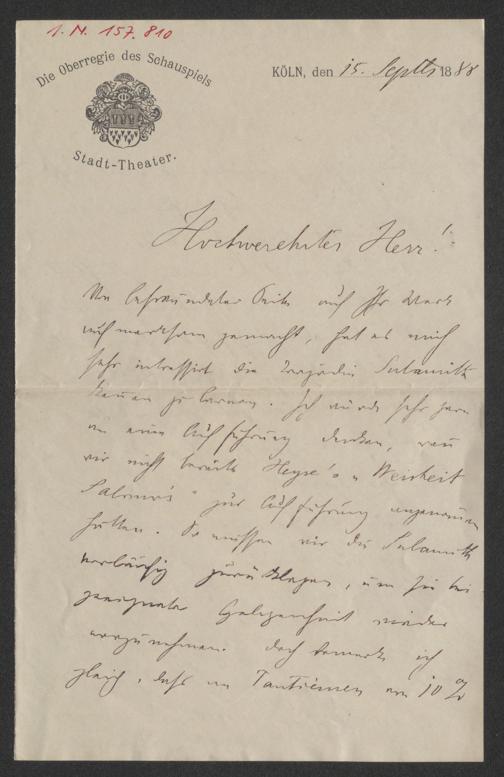 I. N. 157.810
Die Oberregie des Schauspiels
Stadt-Theater.
KÖLN, den 15. Septbr 1888
Hochverehrter Herr!
Von befreundeter Seite auf Ihr Werk
aufmerksam gemacht, hat es mich
sehr interessirt die Tragödie Sulamith
kennen zu lernen. Ich würde sehr gern
an eine Aufführung denken, wenn
wir nicht bereits Heyse's „Weisheit
Salomo's" zur Aufführung angenommen
hätten. So müssen wir die Sulamith
vorläufig zurücklegen, um sie bei
geeigneter Gelegenheit wieder
vorzunehmen. Doch bemerke ich
gleich, daß an Tantiemen von 10 %